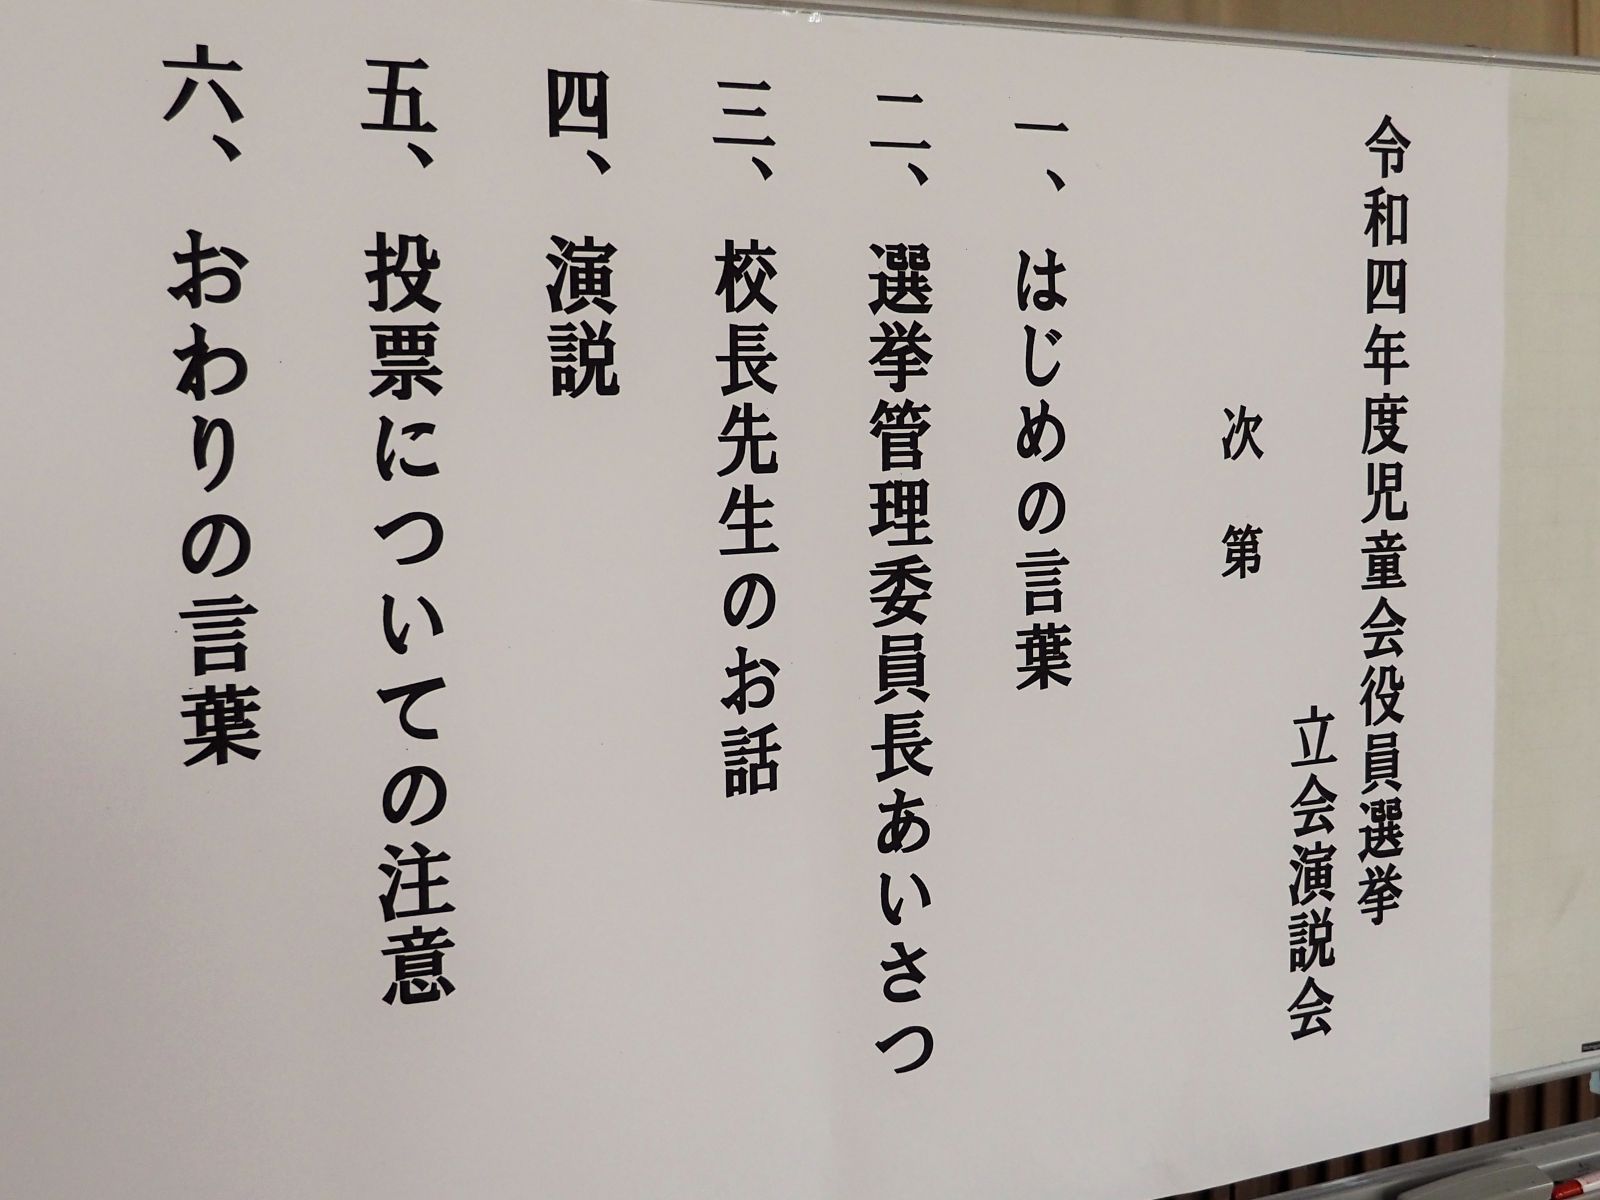 令和四年度児童会役員選挙
立会演説会
次第
一、はじめの言葉
二、選挙管理委員長あいさつ
三、校長先生のお話
四、演説
五、投票についての注意
六、おわりの言葉